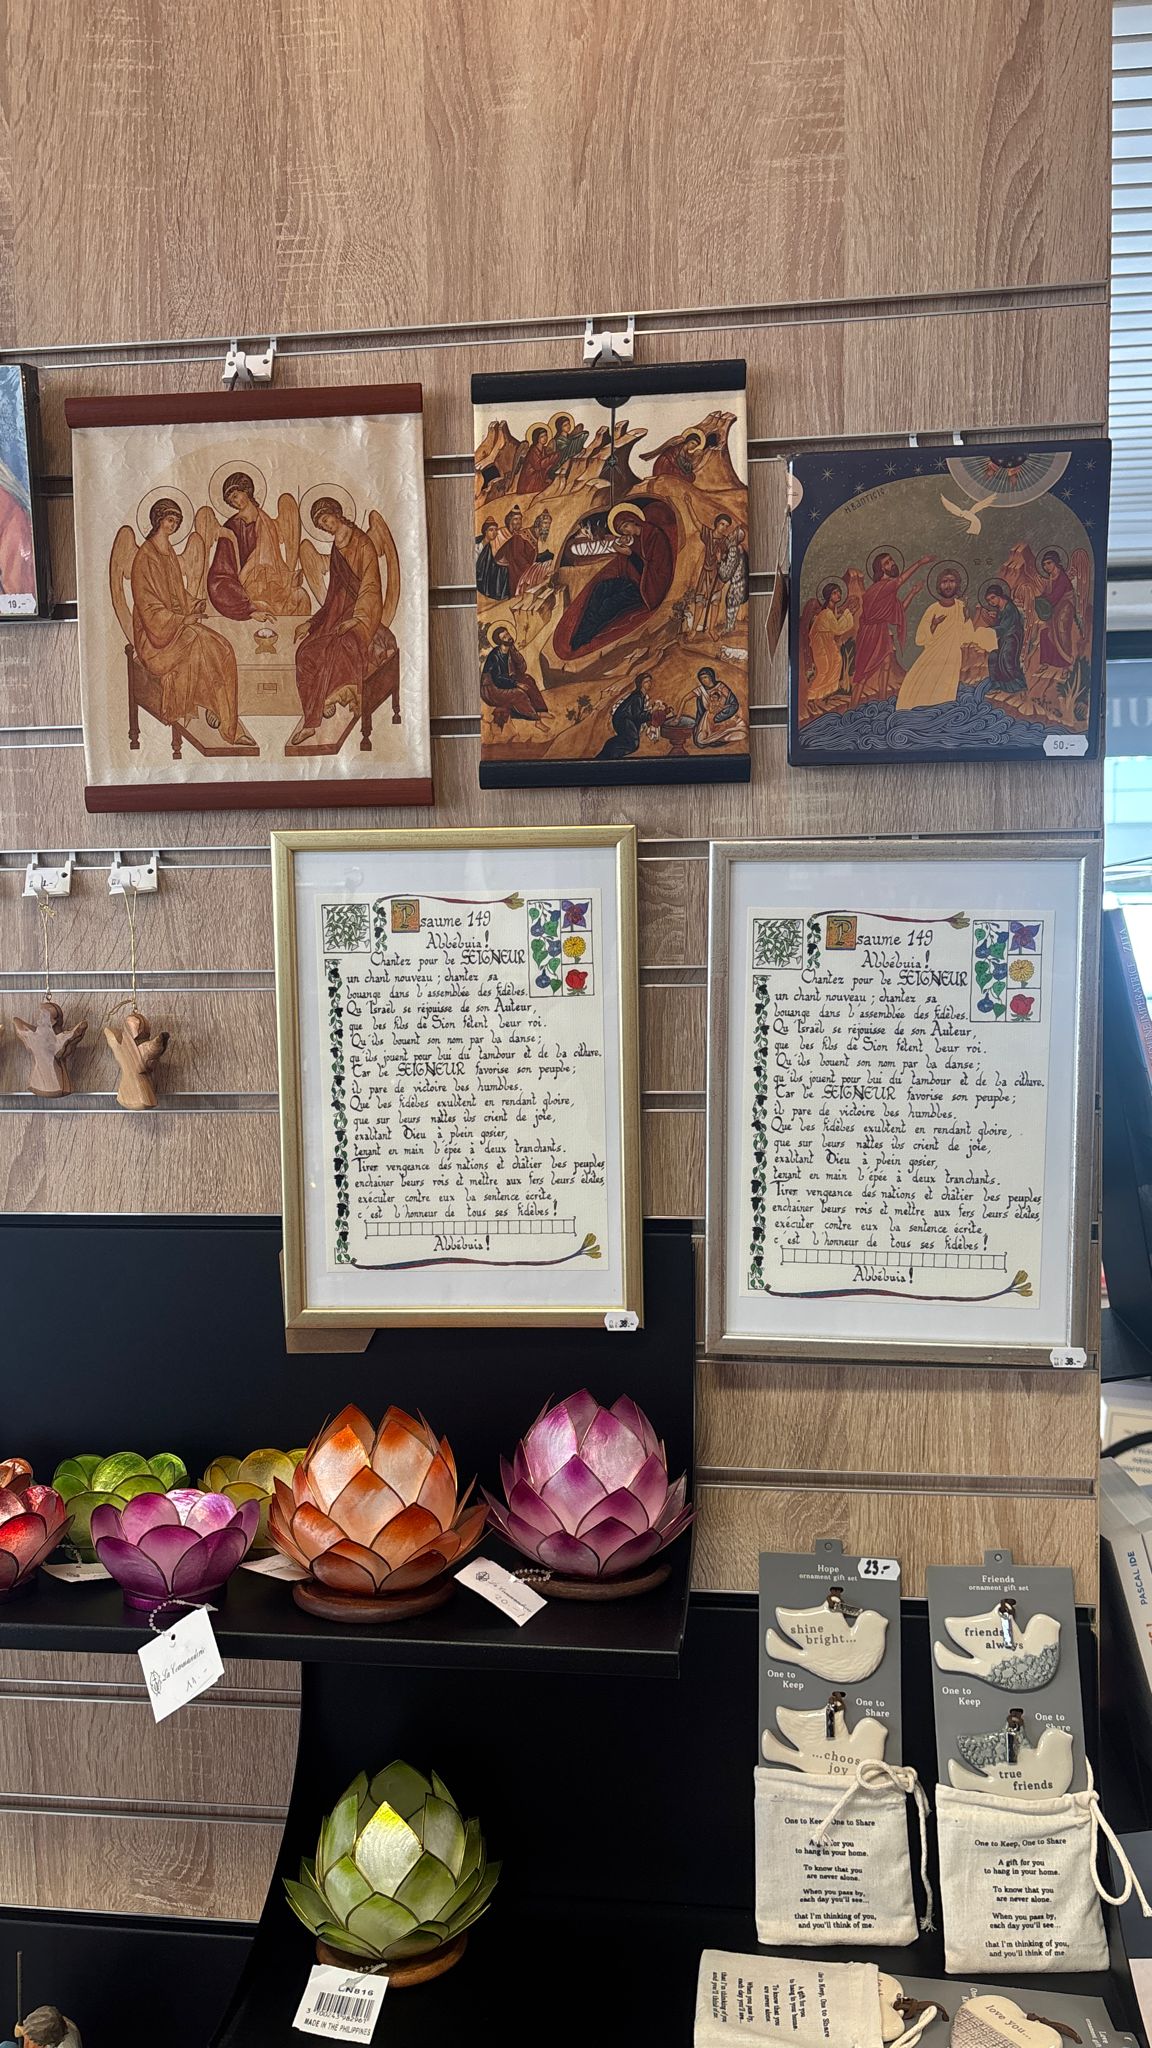 19.-
Η ΒΑΠΤΙCΙC
50.-
Psaume 149
Alléluia !
Chantez pour le SEIGNEUR
un chant nouveau ; chantez sa
louange dans l'assemblée des fidèles.
Qu'Israël se réjouisse de son Auteur,
que les fils de Sion fêtent leur roi.
Qu'ils louent son nom par la danse ;
qu'ils jouent pour lui du tambour et de la cithare.
Car le SEIGNEUR favorise son peuple ;
il pare de victoire les humbles.
Que les fidèles exultent en rendant gloire,
que sur leurs nattes ils crient de joie,
exaltant Dieu à plein gosier,
tenant en main l'épée à deux tranchants.
Tirer vengeance des nations et châtier les peuples,
enchaîner leurs rois et mettre aux fers leurs élites,
exécuter contre eux la sentence écrite,
c'est l'honneur de tous ses fidèles !
Alléluia !
38.-
Psaume 149
Alléluia !
Chantez pour le SEIGNEUR
un chant nouveau ; chantez sa
louange dans l'assemblée des fidèles.
Qu'Israël se réjouisse de son Auteur,
que les fils de Sion fêtent leur roi.
Qu'ils louent son nom par la danse ;
qu'ils jouent pour lui du tambour et de la cithare.
Car le SEIGNEUR favorise son peuple ;
il pare de victoire les humbles.
Que les fidèles exultent en rendant gloire,
que sur leurs nattes ils crient de joie,
exaltant Dieu à plein gosier,
tenant en main l'épée à deux tranchants.
Tirer vengeance des nations et châtier les peuples,
enchaîner leurs rois et mettre aux fers leurs élites,
exécuter contre eux la sentence écrite,
c'est l'honneur de tous ses fidèles !
Alléluia !
38.-
ZITA
PASCAL IDE
La Commanderie
11.-
La Commanderie
20.-
Hope
ornament gift set
23.-
shine
bright...
One to
Keep
One to
Share
...choose
joy
One to Keep, One to Share
A gift for you
to hang in your home.
To know that you
are never alone.
When you pass by,
each day you'll see...
that I'm thinking of you,
and you'll think of me.
Friends
ornament gift set
friends
always
One to
Keep
One to
Share
true
friends
One to Keep, One to Share
A gift for you
to hang in your home.
To know that you
are never alone.
When you pass by,
each day you'll see...
that I'm thinking of you,
and you'll think of me
MADE IN THE PHILIPPINES
love you...